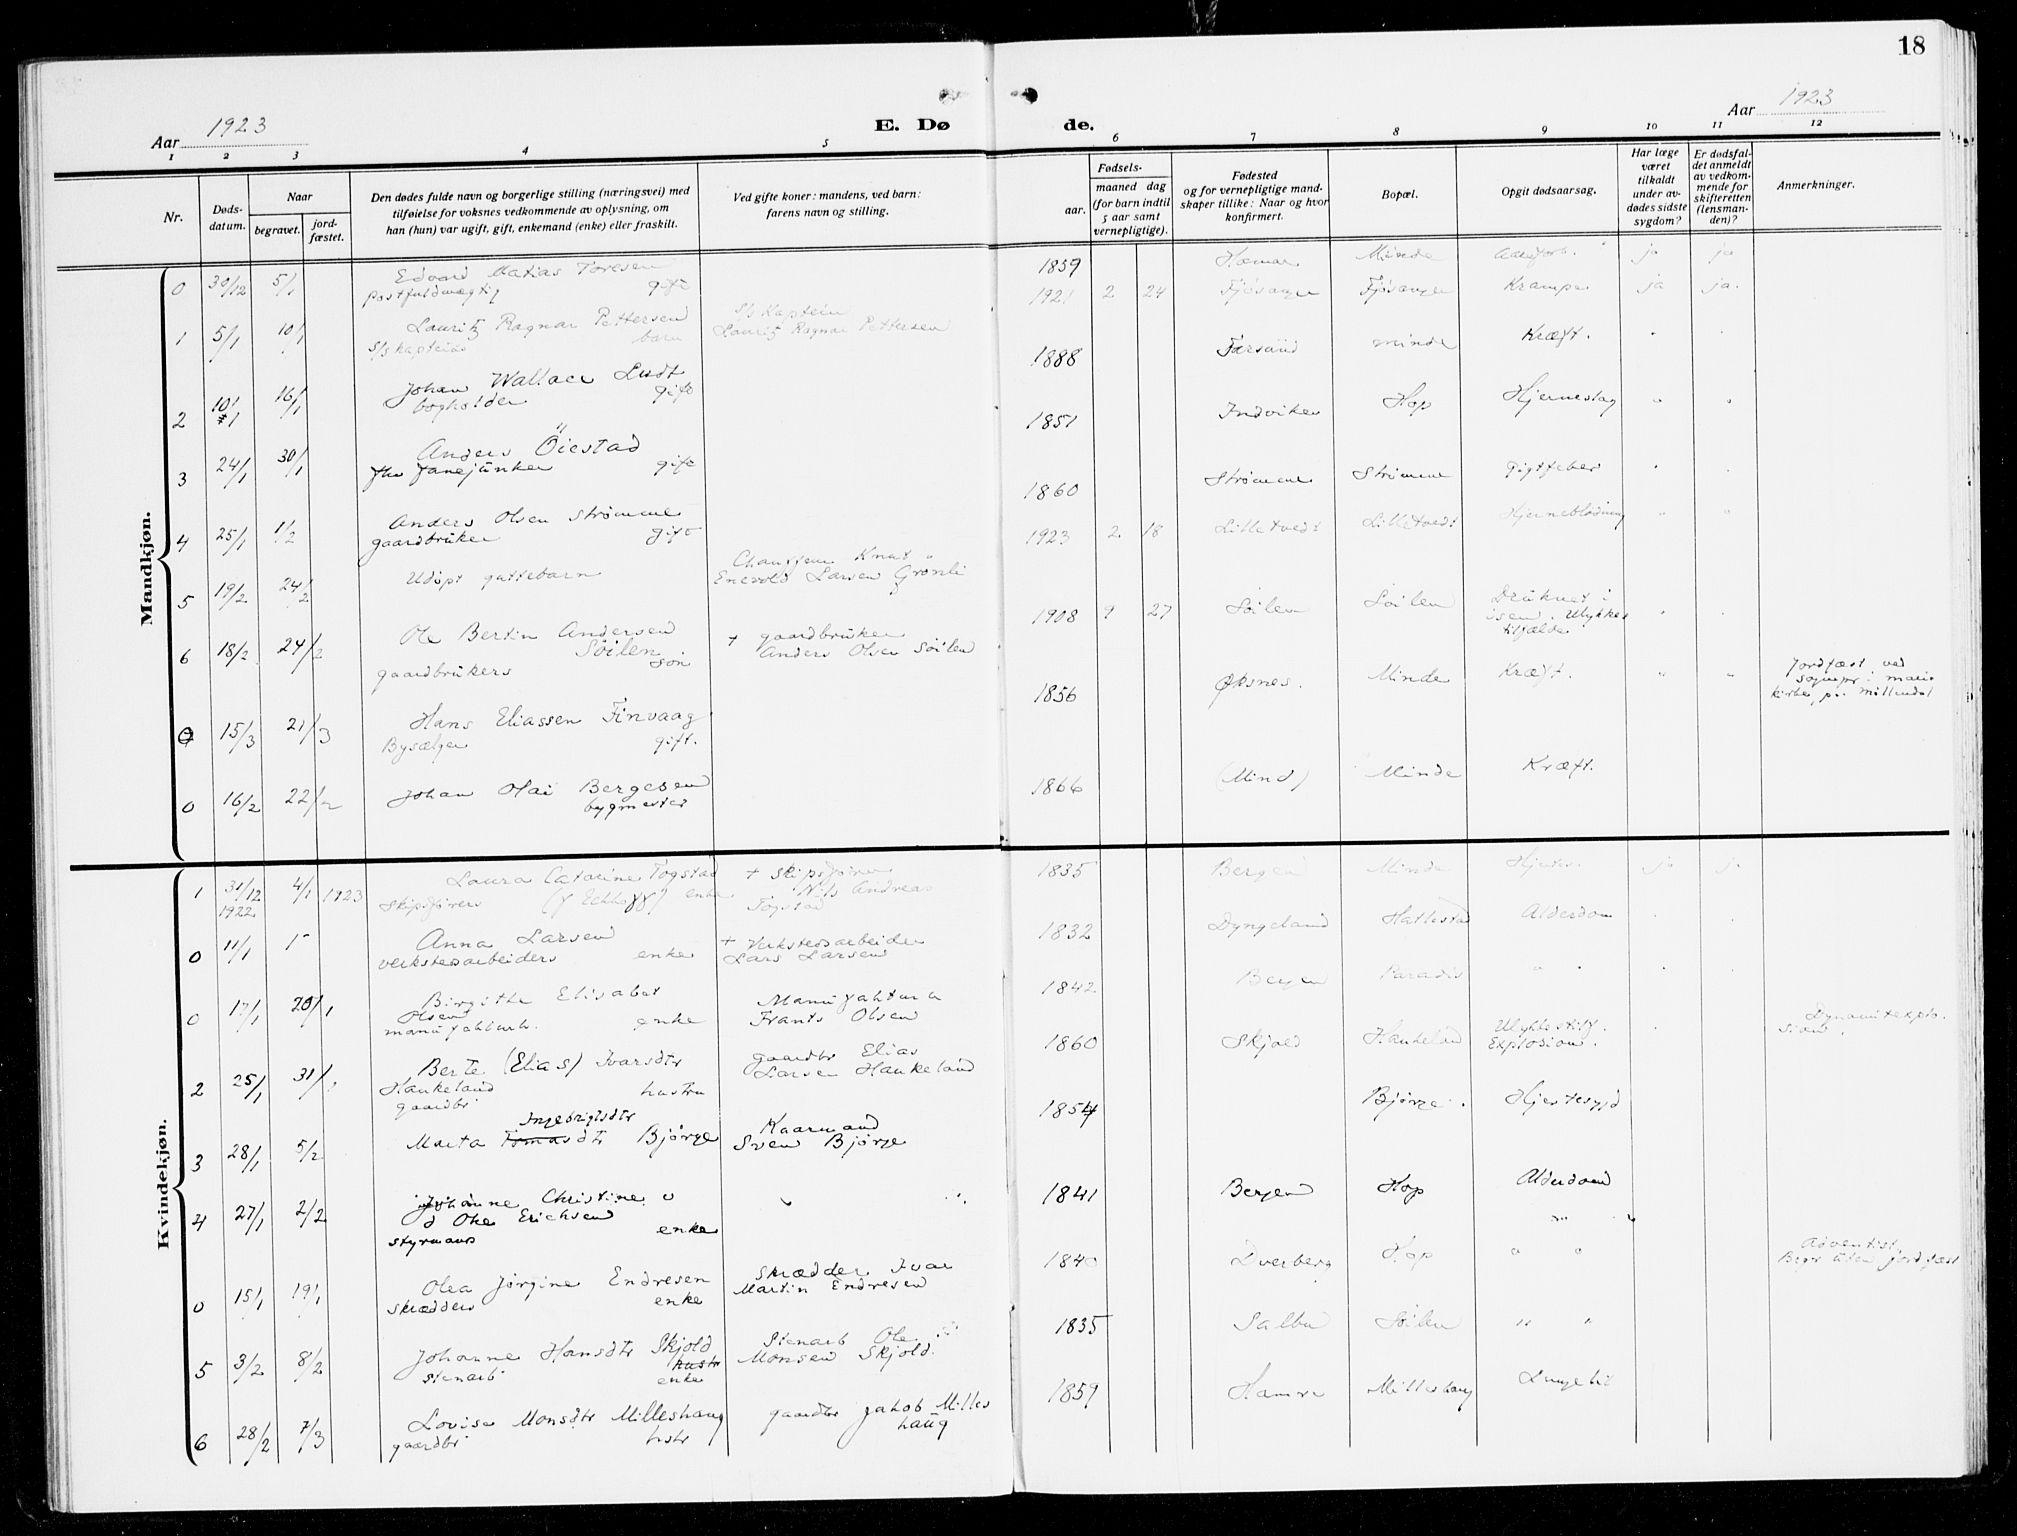 18
Aar 1923
E. Dø
de.
Aar 1923
1 2 3 4 5 6 7 8 9 10 11 12
Nr.
Døds-
datum.
Naar
begravet.
jord-
fæstet.
Den dødes fulde navn og borgerlige stilling (næringsvei) med
tilføielse for voksnes vedkommende av oplysning, om
han (hun) var ugift, gift, enkemand (enke) eller fraskilt.
Ved gifte koner: mandens, ved barn:
farens navn og stilling.
Fødsels-
aar.
maaned dag
(for barn indtil
5 aar samt
vernepligtige).
Fødested
og for vernepligtige mand-
skaper tillike: Naar og hvor
konfirmert.
Bopæl.
Opgit dødsaarsag.
Har læge
været
tilkaldt
under av-
dødes sidste
sygdom?
Er dødsfal-
det anmeldt
av vedkom-
mende for
skifteretten
(lensman-
den)?
Anmerkninger.
Mandkjøn.
0 30/12 5/1 Edvard Matias Toresen 1859 Hamar Minde ja ja
Postfuldmægtig gift
1 5/1 10/1 Lauritz Ragnar Pettersen S/s Kaptein 1921 2 24 Fjøsanger Fjøsanger Krampe ja ja.
S/s kapteins barn Lauritz Ragnar Pettersen
2 10/1 16/1 Johan Wallace Lndt 1888 Farsund Minde Kræft.
bogholder gift
3 24/1 30/1 Anders Öiestad 1851 Indviken Hop Hjerneslag
fanejunker gift
4 25/1 1/2 Anders Olsen Strømme 1860 Strømme Strømme Gigtfeber
gaardbruker gift
5 19/2 24/2 Udøpt guttebarn Chauffeur Knut 1923 2. 18 Lilletvedt Lilletvedt Hjerneblødning
Enevold Larsen Grønli
6 18/2 24/2 Ole Bertin Andersen + gaardbruker 1908 9 27 Söilen Söilen Druknet i
Söilen Anders Olsen Söilen isen. Ulykkes
gaardbrukers søn tilfælde
0 15/3 21/3 Hans Eliassen Finvaag 1856 Øksnes. Minde Kræft. Jordfæst. ved
Bysælger gift. sognepr. i Maria
kirke, på Møllendal
0 16/2 22/2 Johan Olai Bergesen 1866 (Mind) Minde Kræft.
bygmester
Kvindekjøn.
1 31/12 4/1 1923 Laura Catarine Togstad + Skipsfører 1835 Bergen Minde Hjerte ja ja
1922 Skipsførers (f Eckhoff) enke Nils Andreas
Togstad
0 11/1 1 Anna Larsen + Verkstedsarbeider 1832 Dyngeland Hatlestad Alderdom
verkstedsarbeiders enke Lars Larsen
0 17/1 20/1 Birgithe Elisabet Manufakturh 1842 Bergen Paradis " "
Olsen Frants Olsen
manufakturh. enke
2 25/1 31/1 Berte (Elias) Ivarsdtr gaardbr Elias 1860 Skjold Haukeland Ulykkestilf. Dynamitexplo-
Haukeland Larsen Haukeland Explosion. sion.
gaardbr hustru
3 28/1 5/2 Ingebrigtsdtr
Marta Tomasdtr Bjørge Kaarmand 1854 Bjørge. Hjertesygd
Sven Bjørge
4 27/1 2/2 Johanne Christine 1841 Bergen Hop Alderdom
Erichsen
styrmans enke
0 15/1 19/1 Olea Jørgine Endresen Skrædder Ivar 1840 Dverberg Hop " " Adventist.
skrædders enke Martin Endresen Begr uten jordfæst
5 3/2 8/2 Johanne Hansdtr Skjold Stenarb Ole 1835 Salbu Söilen " "
hustr Monsen Skjold.
stenarb enke
6 28/2 7/3 Lovise Monsdtr Milleshaug gaardbr Jakob Milles 1859 Hamre Milleshaug Lungebet
gaardbr hstr haug